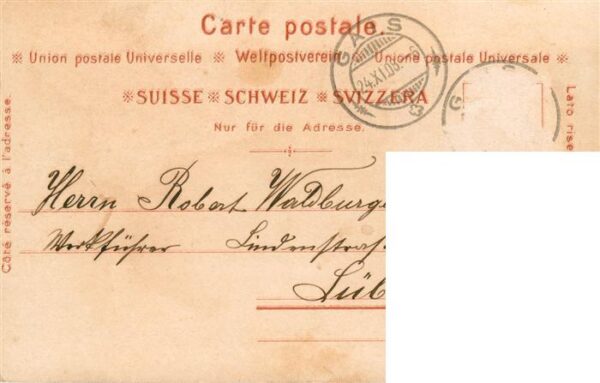 Carte postale.
※ Union postale Universelle ※ Weltpostverein ※ Unione postale Universale ※
※ SUISSE ※ SCHWEIZ ※ SVIZZERA
Nur für die Adresse.
Côté réservé à l'adresse.
Lato rise
GAIS
24.XI.03.
Herrn Robert Waldburge
Werkführer Lindenstraß
Lüb